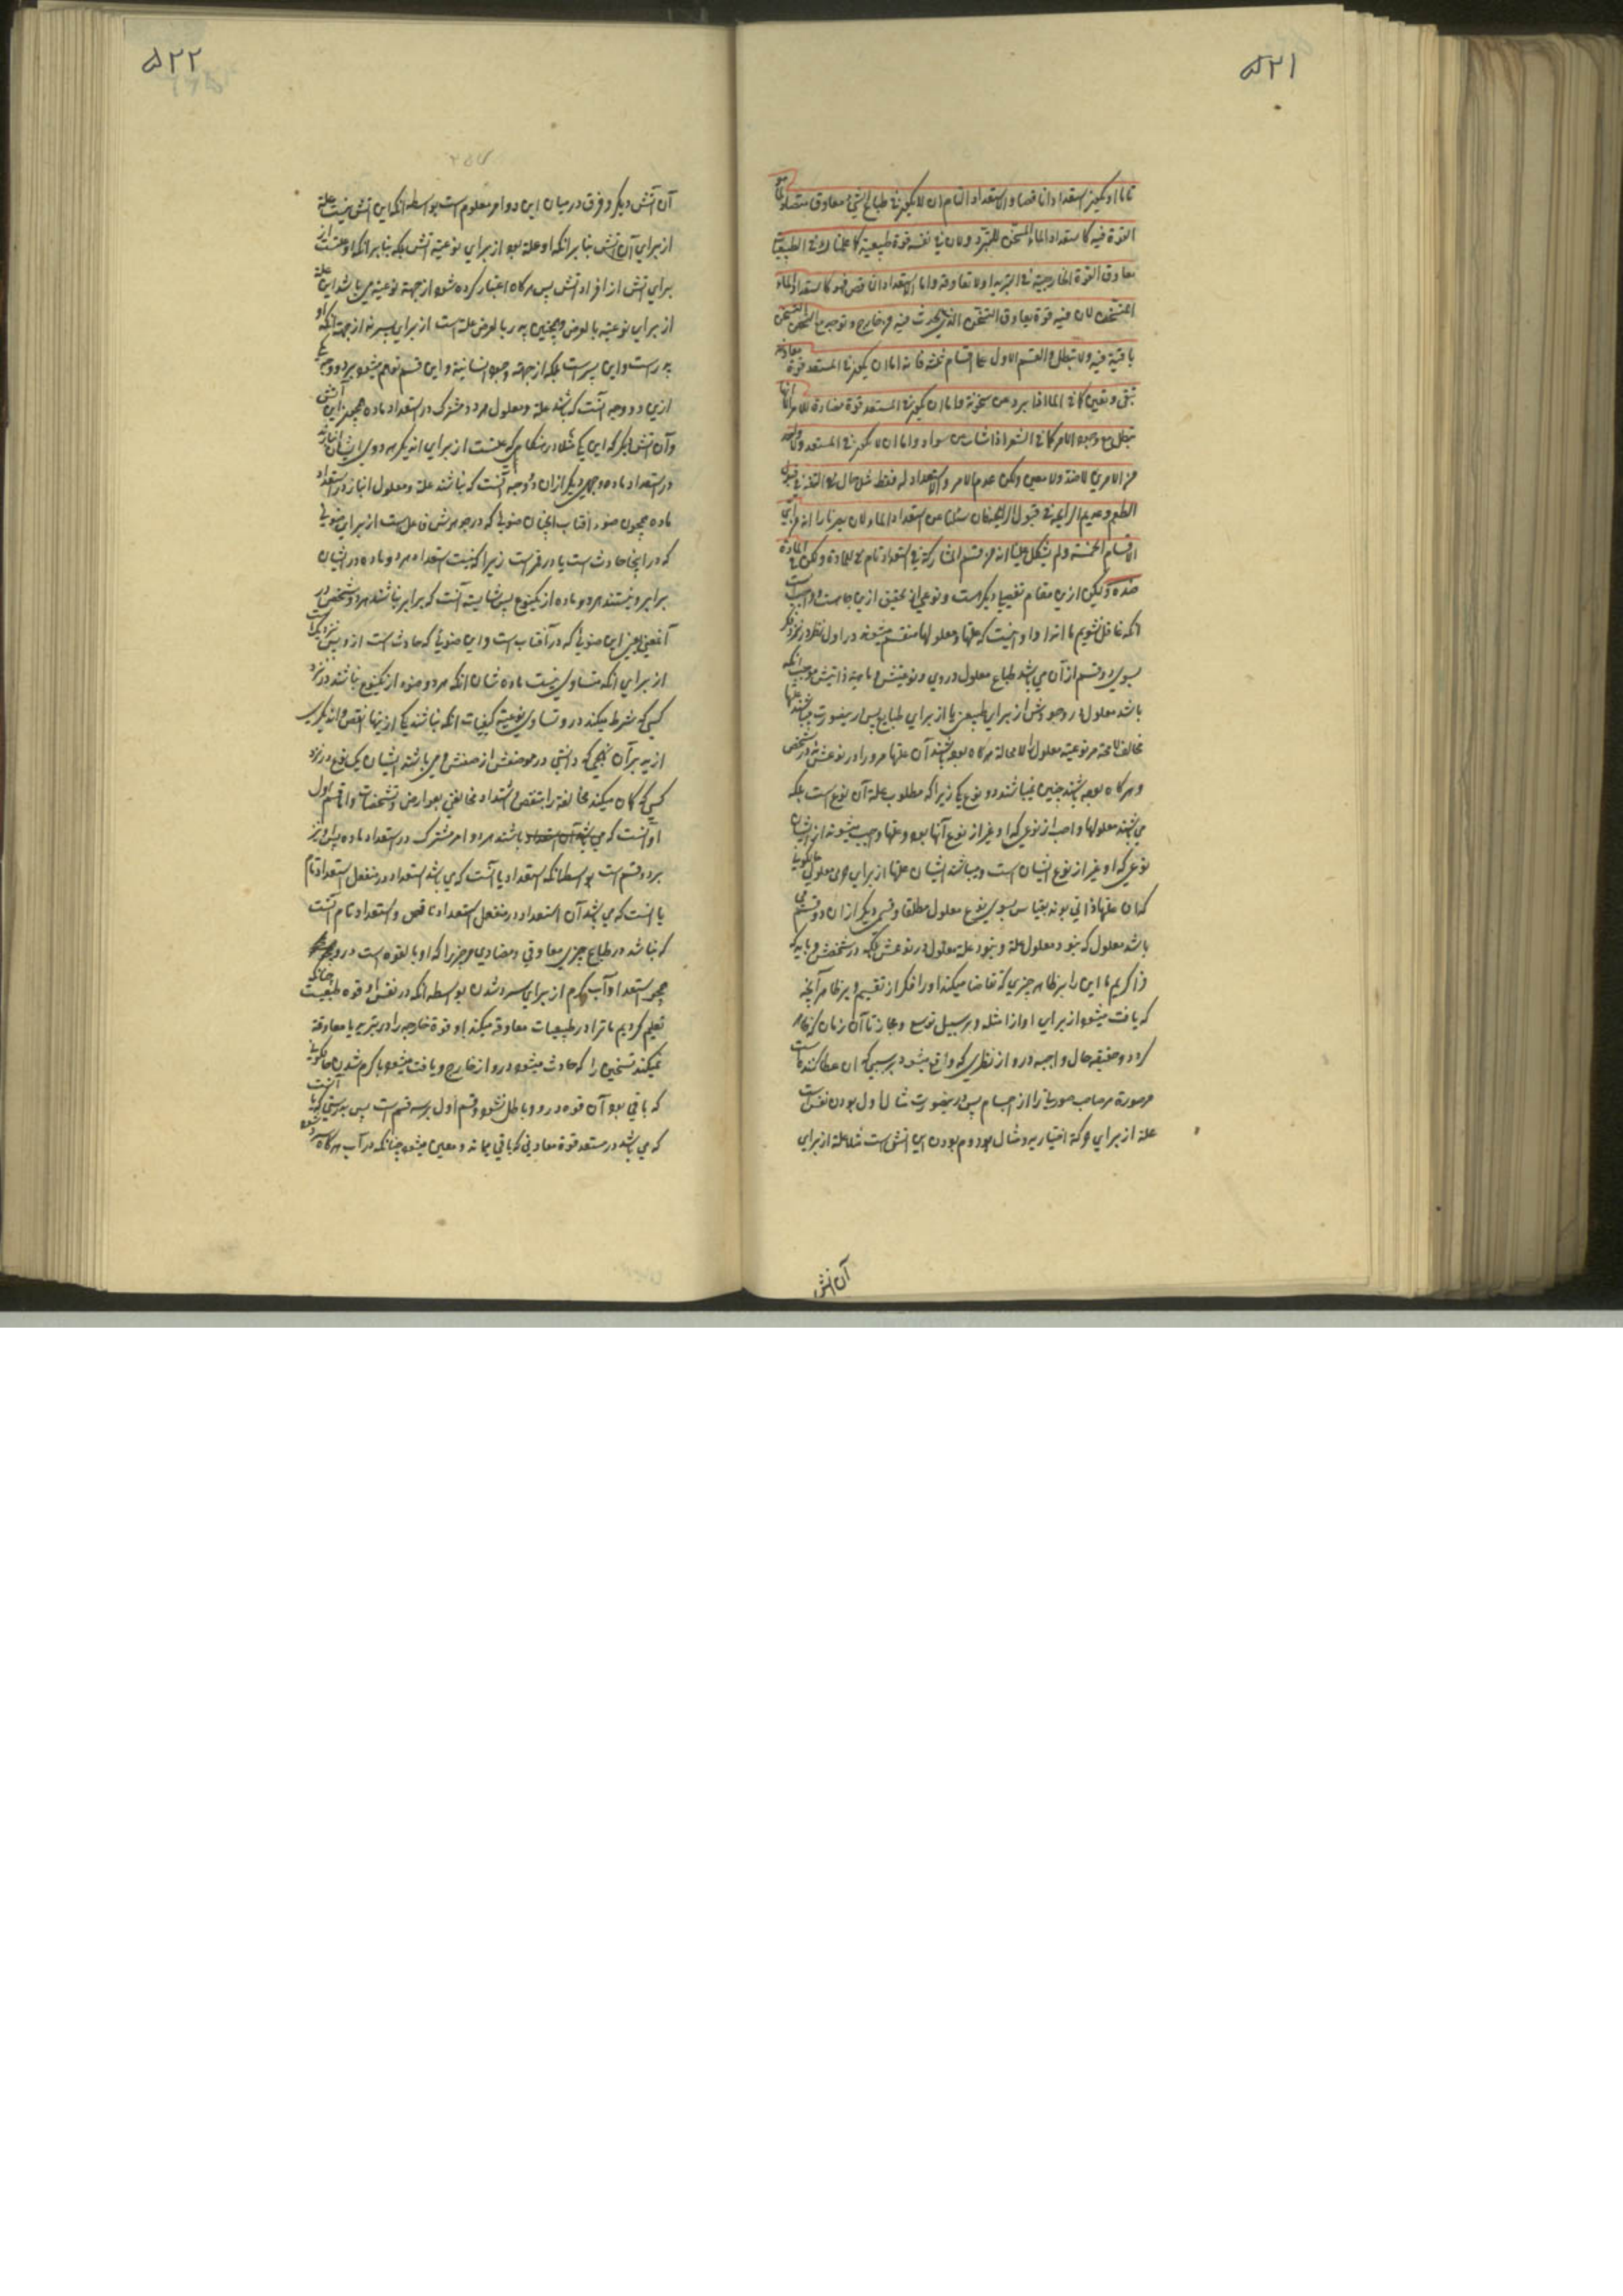 ۵۲۱
تاما او یکون استعدادا ناقصا والاستعداد التام ان لا یکون فی طباع الشیء معاوق مضاد لما هو
القوة فیه کاستعداد الماء المسخن للتبرد ولان فی نفسه قوة طبیعیة کما علمنا فی الطبیعیات
تعاوق القوة الخارجیة فی التبرید او لا تعاوقه واما الاستعداد الناقص فهو کاستعداد الماء
للتسخن لان فیه قوة تعاوق التسخن الذی یحدث فیه من خارج و توجد مع التسخن
باقیة فیه ولا تبطل والقسم الاول علی اقسام ثلثة فانه اما ان یکون فی المستعد قوة معاونة
تبقی و تعین کما فی الماء اذا برد من سخونة واما ان یکون فی المستعد قوة مضادة للامر الا انها
تبطل مع وجود الامر کما فی الشعر اذا شاب من سواد واما ان لا یکون فی المستعد ولا واحد
من الامرین لا ضد ولا معین ولکن عدم الامر والاستعداد له فقط مثل حال التفه فی قبول
الطعم وعدیم الرایحة فی قبول الرایحة فان سئلنا عن استعداد الماء لان یصیر نارا انه من ای
الاقسام الخمسة ولم یشکل علینا انه من قسم المشارکة فی استعداد تام للمادة ولکن فی المادة
ضده ولیکن ازین مقام تفصیل دیگر است و نوعی از تحقیق ازین جاست و واجبست
آنکه غافل نشویم ما آنرا و او اینست که علتها و معلولها منقسم میشوند در اول نظر در نزد فکر
بسوی دو قسم از آن می باشد طباع معلول در وی و نوعیتش و ماهیة ذاتیش موجب آنکه
باشد معلول در وجودش از برای طبیعتی یا از برای طبایع پس در ینصورت میباشند علتها
مخالف لا محالة مر نوعیة معلول را لا محالة هرگاه بوده باشند آن علتها مر او را در نوعش نه در شخص
و هرگاه بوده باشند چنین نمیباشند دو نوع یکی زیرا که مطلوب علة آن نوع است بلکه
می باشند معلولها واجب از نوعی که او غیر از نوع آنها بود و علتها واجب میشوند از ایشان
نوعی که او غیر از نوع ایشان است و میباشند ایشان علتها از برای شیء معلول
که آن علتها ذاتی بوند بقیاس بسوی نوع معلول مطلقا و قسمی دیگر از آن دو قسم می
باشد معلول که نبود معلول علة و نبود علة معلول در نوعش بلکه در شخصش و باید که
فرا گیریم ما این را بر ظاهر چیزی که تقاضا میکند او را فکر از تقسیم و بر ظاهر آنچه
که یافت میشود از برای او از امثله و بر سبیل توسع و مجاز تا آن زمان که ظاهر
گردد حقیقة حال واجبه درو از نظری که واقع میشود در سببی که آن عطا کننده است
مر صورة مر صاحب صورتی را از اجسام پس در ینصورت مثال اول بودن نفس است
علة از برای حرکة اختیاریه و مثال دوم بودن این آتش است مثلا علة از برای
آن آتش
۵۲۲
آن آتش دیگر و فرق در میان این دو امر معلوم است بواسطه آنکه این آتش نیست علة
از برای آن آتش بنا بر آنکه او علة بود از برای نوعیة آتش بلکه بنا بر آنکه او علتست از
برای آتش از افراد آتش پس هرگاه اعتبار کرده شود از جهة نوعیة می باشد این علة
از برای نوعیة بالعرض و همچنین پدر بالعرض علة است از برای پسر نه از جهة آنکه او
پدر است و این پسر است بلکه از جهة وجود انسانیة و این قسم توهم میشود بر دو وجه یکی
ازین دو وجه آنست که باشند علة و معلول هر دو مشترک در استعداد ماده همچون این آتش
و آن آتش دیگر که این یکی مثلا در هنگامی که علتست از برای آن دیگر هر دوی ایشان
در استعداد ماده و وجهی دیگر از آن دو وجه آنست که نباشند علة و معلول انباز در استعداد
ماده همچون ضوء آفتاب آنچنان ضوئی که در جوهرش فاعل است از برای ضوئی
که در اینجا حادث است یا در قمر است زیرا که نیست استعداد هر دو ماده در ایشان
برابر و نیستند هر دو ماده از یکنوع پس شایسته آنست که برابر نباشند هر دو شخص در
آن ضوء یعنی این ضوئی که در آفتاب است و این ضوئی که حادث است ازو پس نزدیک است
از برای آنکه متساوی نیست ماده شان آنکه هر دو ضوء از یکنوع نباشند در نزد
کسی که شرط میکند در تساوی نوعیة کیفیات آنکه نباشند یکی از ینها انقص و آن دیگری
ازید بر آن نهجی که دانستی در موضعش از صفتش و می باشند ایشان یک نوع در نزد
کسی که گمان میکند مخالفة را بنقص و اشتداد مخالفتی بعوارض و تشخصات و اما قسم اول
او آنست که می باشند هر دو امر مشترک در استعداد ماده پس او نیز
بر دو قسم است بواسطه آنکه استعداد یا آنست که می باشد استعداد در منفعل استعداد تام
یا آنست که می باشد آن استعداد در منفعل استعداد ناقص و استعداد تام آنست
که نباشد در طباع چیزی معاوقی و مضادی مر چیزی را که او بالقوه است درو
همچو استعداد آب گرم از برای سرد شدن بواسطه آنکه در نفس او قوه طبیعیست چنانکه
تعلیم کردیم ما ترا در طبیعیات معاوقه میکند او قوة خارجه را در تبرید یا معاوقة
نمیکند تسخین را که حادث میشود درو از خارج و یافت میشود با گرم شدن حالکونی
که باقی بود آن قوه درو و باطل نشود و قسم اول بر سه قسم است پس بدرستی که یا آنست
که می باشد در مستعد قوة معاونی که باقی بماند و معین میشود چنانکه در آب هرگاه سرد شود